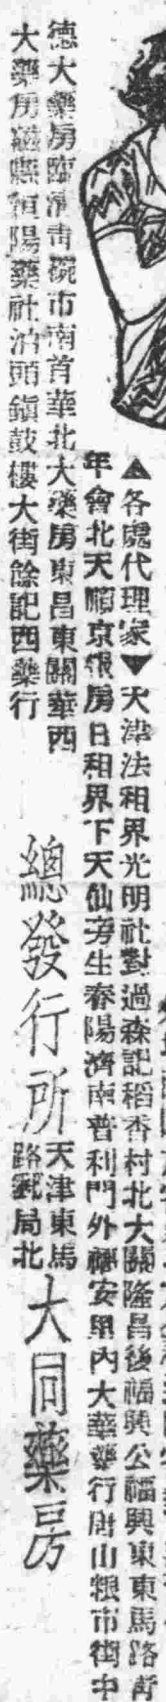 ▲各處代理家▼天津法租界光明社對過森記稻香村北大關隆昌後福興公福興東東馬路青
年會北天順京報房日租界下天仙旁生春陽濟南普利門外福安里內大華藥行唐山粮市街中
德大藥房臨清靑碗市南首華北大藥房東昌東關華西
大藥房磁縣恒陽藥社泊頭鎮鼓樓大街餘記西藥行
總發行所
天津東馬
路郵局北
大同藥房